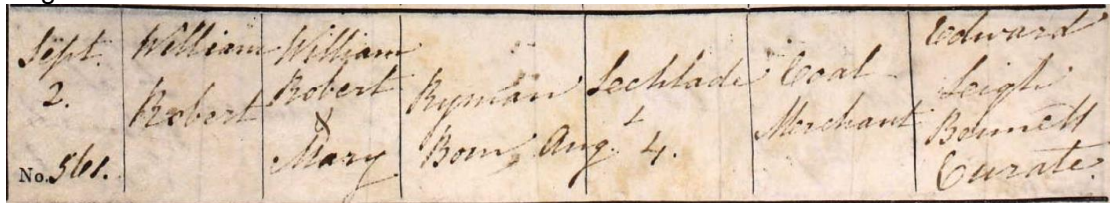 Sept.
2.
No. 561.
William
Robert
William
Robert
&
Mary
Ryman
Born Aug 4.
Lechlade
Coal
Merchant
Edward
Leigh
Bennett
Curate.